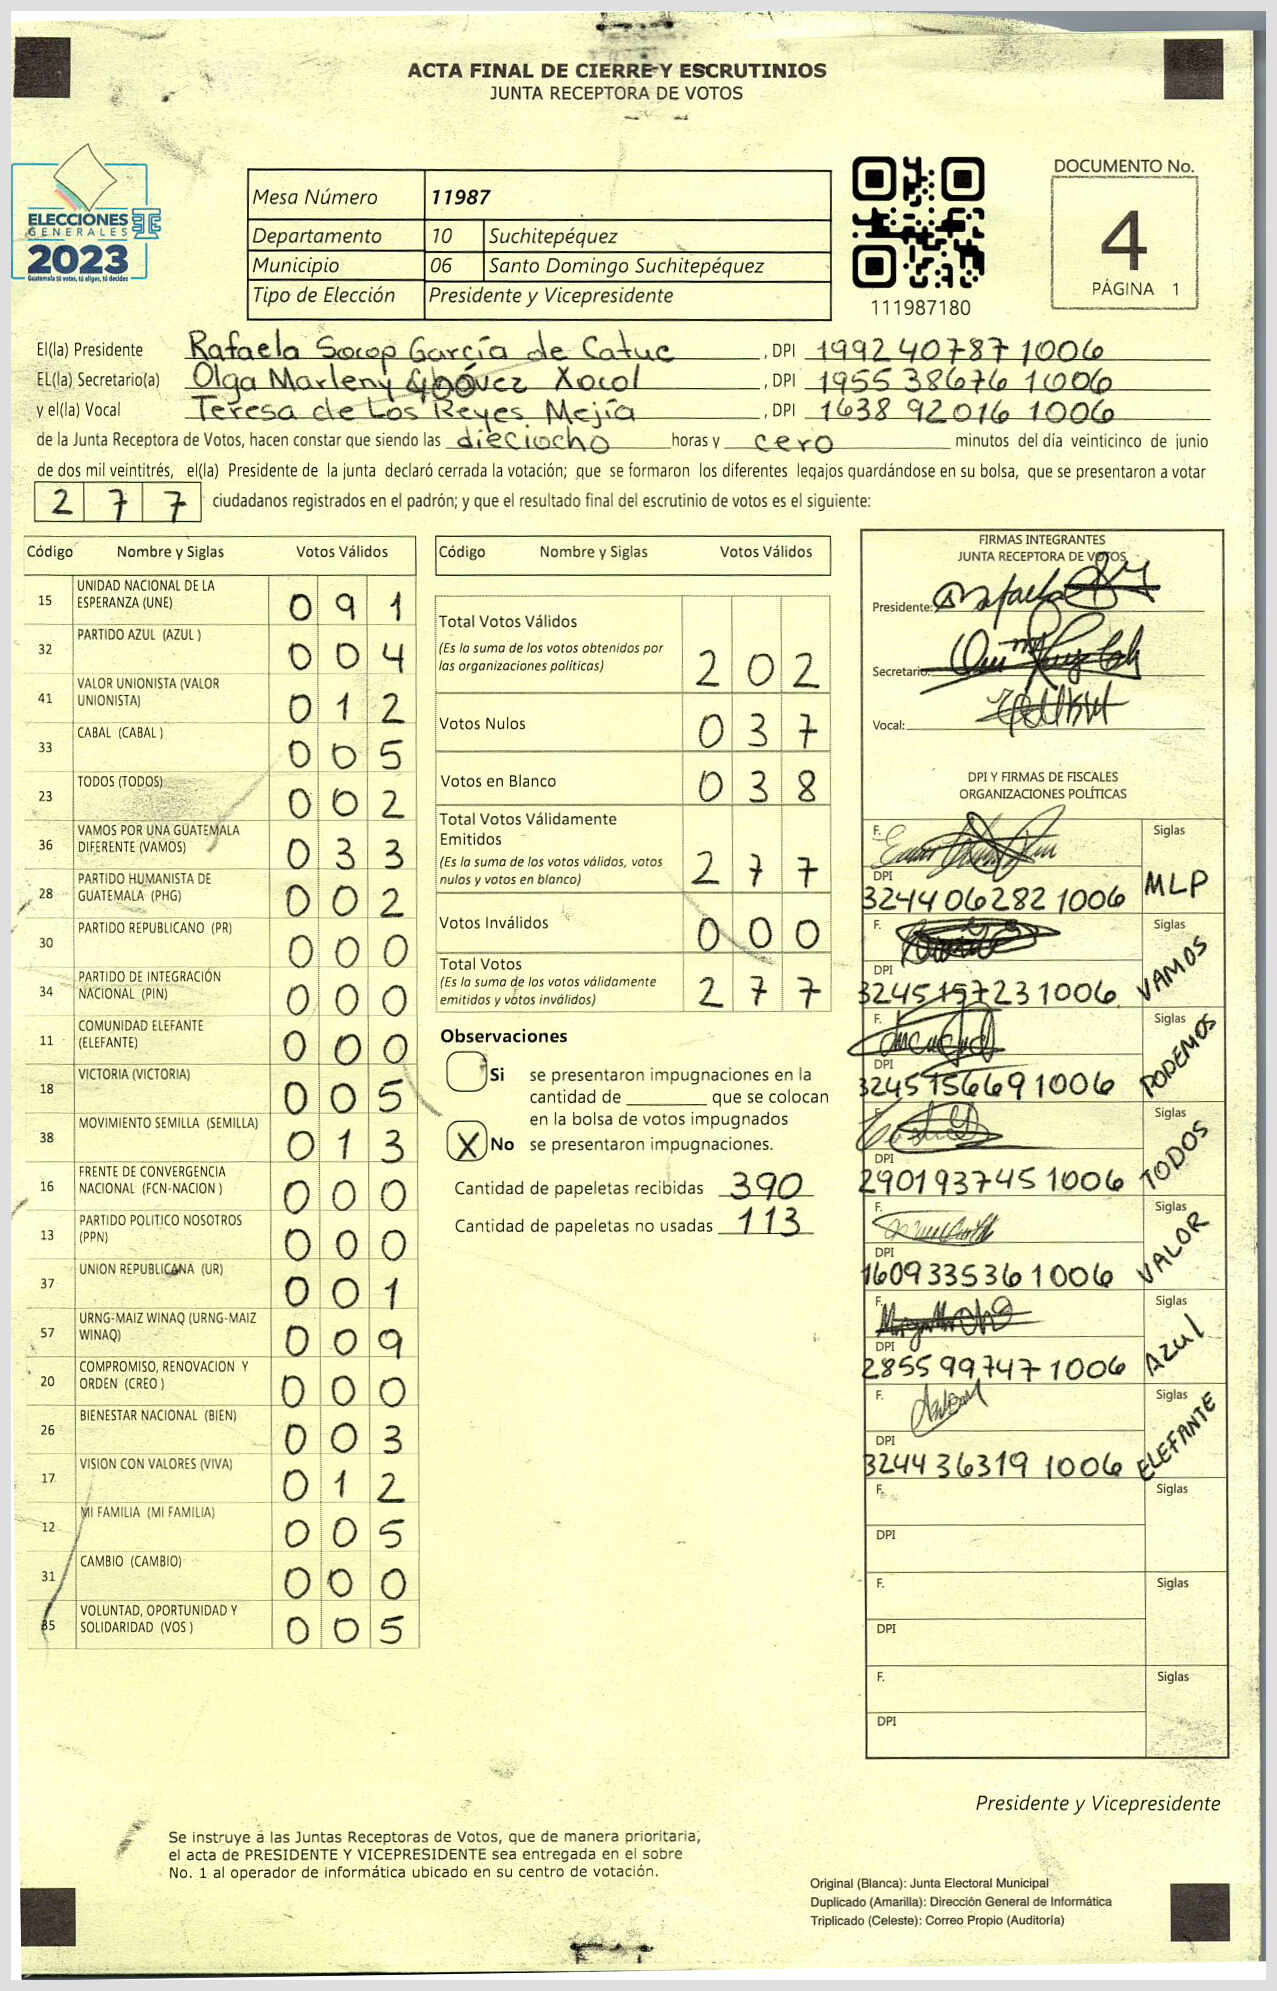 ACTA FINAL DE CIERRE Y ESCRUTINIOS
JUNTA RECEPTORA DE VOTOS
ELECCIONES
GENERALES
2023
Guatemala tú votas, tú eliges, tú decides
Mesa Número 11987
Departamento 10 Suchitepéquez
Municipio 06 Santo Domingo Suchitepéquez
Tipo de Elección Presidente y Vicepresidente
111987180
DOCUMENTO No.
4
PÁGINA 1
El(la) Presidente Rafaela Socop García de Catuc , DPI 1992 40787 1006
EL(la) Secretario(a) Olga Marleny Xocol , DPI 1955 38676 1006
y el(la) Vocal Teresa de Los Reyes Mejía , DPI 1638 92016 1006
de la Junta Receptora de Votos, hacen constar que siendo las dieciocho horas y cero minutos del día veinticinco de junio
de dos mil veintitrés, el(la) Presidente de la junta declaró cerrada la votación; que se formaron los diferentes legajos guardándose en su bolsa, que se presentaron a votar
2 7 7 ciudadanos registrados en el padrón; y que el resultado final del escrutinio de votos es el siguiente:
Código Nombre y Siglas Votos Válidos
15 UNIDAD NACIONAL DE LA
ESPERANZA (UNE) 0 9 1
32 PARTIDO AZUL (AZUL ) 0 0 4
41 VALOR UNIONISTA (VALOR
UNIONISTA) 0 1 2
33 CABAL (CABAL ) 0 0 5
23 TODOS (TODOS) 0 0 2
36 VAMOS POR UNA GUATEMALA
DIFERENTE (VAMOS) 0 3 3
28 PARTIDO HUMANISTA DE
GUATEMALA (PHG) 0 0 2
30 PARTIDO REPUBLICANO (PR) 0 0 0
34 PARTIDO DE INTEGRACIÓN
NACIONAL (PIN) 0 0 0
11 COMUNIDAD ELEFANTE
(ELEFANTE) 0 0 0
18 VICTORIA (VICTORIA) 0 0 5
38 MOVIMIENTO SEMILLA (SEMILLA) 0 1 3
16 FRENTE DE CONVERGENCIA
NACIONAL (FCN-NACION ) 0 0 0
13 PARTIDO POLITICO NOSOTROS
(PPN) 0 0 0
37 UNION REPUBLICANA (UR) 0 0 1
57 URNG-MAIZ WINAQ (URNG-MAIZ
WINAQ) 0 0 9
20 COMPROMISO, RENOVACION Y
ORDEN (CREO ) 0 0 0
26 BIENESTAR NACIONAL (BIEN) 0 0 3
17 VISION CON VALORES (VIVA) 0 1 2
12 MI FAMILIA (MI FAMILIA) 0 0 5
31 CAMBIO (CAMBIO) 0 0 0
35 VOLUNTAD, OPORTUNIDAD Y
SOLIDARIDAD (VOS ) 0 0 5
Código Nombre y Siglas Votos Válidos
Total Votos Válidos
(Es la suma de los votos obtenidos por
las organizaciones políticas) 2 0 2
Votos Nulos 0 3 7
Votos en Blanco 0 3 8
Total Votos Válidamente
Emitidos
(Es la suma de los votos válidos, votos
nulos y votos en blanco) 2 7 7
Votos Inválidos 0 0 0
Total Votos
(Es la suma de los votos válidamente
emitidos y votos inválidos) 2 7 7
Observaciones
Si se presentaron impugnaciones en la
cantidad de ________ que se colocan
en la bolsa de votos impugnados
X No se presentaron impugnaciones.
Cantidad de papeletas recibidas 390
Cantidad de papeletas no usadas 113
FIRMAS INTEGRANTES
JUNTA RECEPTORA DE VOTOS
Presidente:
Secretario:
Vocal:
DPI Y FIRMAS DE FISCALES
ORGANIZACIONES POLÍTICAS
F. Siglas
DPI
3244 06282 1006 MLP
F. Siglas
DPI
3245 15723 1006 VAMOS
F. Siglas
DPI
3245 15669 1006 PODEMOS
F. Siglas
DPI
2901 93745 1006 TODOS
F. Siglas
DPI
1609 33536 1006 VALOR
F. Siglas
DPI
2855 99747 1006 AZUl
F. Siglas
DPI
3244 36319 1006 ELEFANTE
F. Siglas
DPI
F. Siglas
DPI
F. Siglas
DPI
Presidente y Vicepresidente
Se instruye a las Juntas Receptoras de Votos, que de manera prioritaria,
el acta de PRESIDENTE Y VICEPRESIDENTE sea entregada en el sobre
No. 1 al operador de informática ubicado en su centro de votación.
Original (Blanca): Junta Electoral Municipal
Duplicado (Amarilla): Dirección General de Informática
Triplicado (Celeste): Correo Propio (Auditoría)